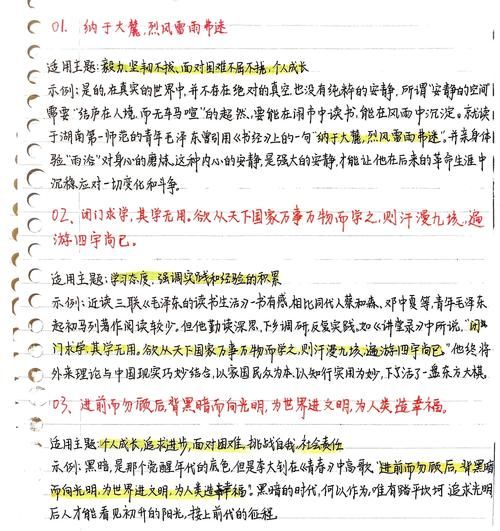 01. 纳于大麓,烈风雷雨弗迷
适用主题:毅力,坚韧不拔、面对困难不屈不挠,个人成长
示例:是的,在真实的世界中,并不存在绝对的真空,也没有纯粹的安静,所谓"安静的空间
需要"结庐在人境,而无车马喧"的超然、要能在闹市中读书,能在风雨中沉淀。就读
于湖南第一师范的青年毛泽东曾引用《书经》上的一句"纳于大麓,烈风雷雨弗迷"。并亲身体
验"雨浴"对身心的磨炼。这种内心的安静,是强大的安静,才能让他在后来的革命生涯中
沉稳应对一切变化和斗争。
02. 闭门求学,其学无用。欲从天下国家万事万物而学之,则汗漫九垓,遍
游四宇尚已。
适用主题:学习态度、强调实践和经验的积累
示例:近读三联《毛泽东的读书生活》一书有感,相比同代人蔡和森、邓中夏等,青年毛泽东
起初马列著作阅读较少。但他勤读深思,下乡调研,反复实践,如《讲堂录》中所说,"闭
门求学,其学无用。欲从天下国家万事万物而学之,则汗漫九垓,遍游四宇尚已。"他终将
外来理论与中国现实巧妙结合,以家国民众为本,以知行实用为妙,下活了一盘东方大棋。
03. 进前而勿顾后,背黑暗而向光明,为世界进文明,为人类造幸福。
适用主题:个人成长,追求进步,面对困难,挑战自我,社会责任
示例:黑暗,是那个觉醒年代的底色,但是李大钊在《青春》中高歌"进前而勿顾后,背黑暗
而向光明,为世界进文明,为人类造幸福"。黑暗的时代,何以作为,唯有踏平坎坷 追求光明
后人才能看见初升的阳光,接上前代的征程。